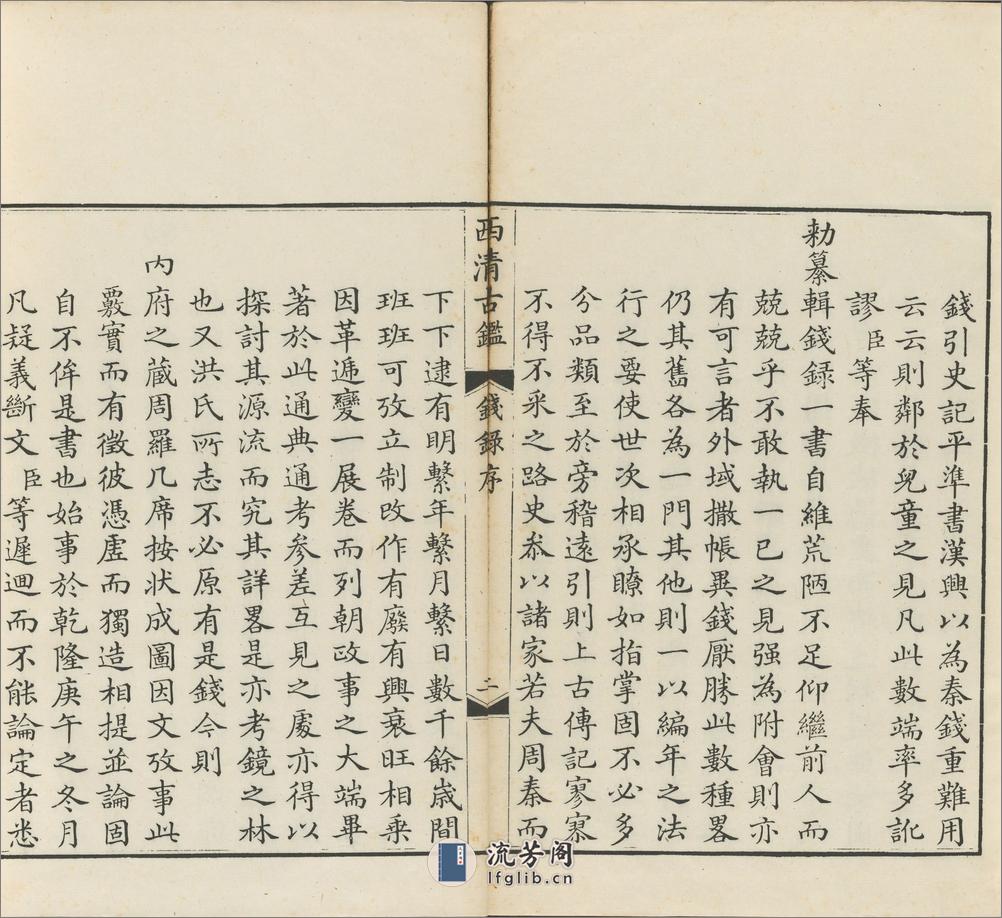 錢引史記平準書漢興以為秦錢重難用
云云則鄰於兒童之見凡此數端率多訛
謬臣等奉
勅纂輯錢録一書自維荒陋不足仰繼前人而
兢兢乎不敢執一己之見强為附會則亦
有可言者外域撒帳異錢厭勝此數種畧
仍其舊各為一門其他則一以編年之法
行之要使世次相承瞭如指掌固不必多
分品類至於旁稽遠引則上古傳記寥寥
不得不采之路史叅以諸家若夫周秦而
西清古鑑 錢錄序 二
下下逮有明繫年繫月繫日數千餘歳間
班班可攷立制改作有廢有興衰旺相乗
因革遞變一展卷而列朝政事之大端畢
著於此通典通考參差互見之處亦得以
探討其源流而究其詳畧是亦考鏡之林
也又洪氏所志不必原有是錢今則
内府之藏周羅几席按状成圖因文攷事此
覈實而有徵彼憑虛而獨造相提並論固
自不侔是書也始事於乾隆庚午之冬月
凡疑義斷文臣等遲迴而不能論定者悉
流芳阁
lfglib.cn